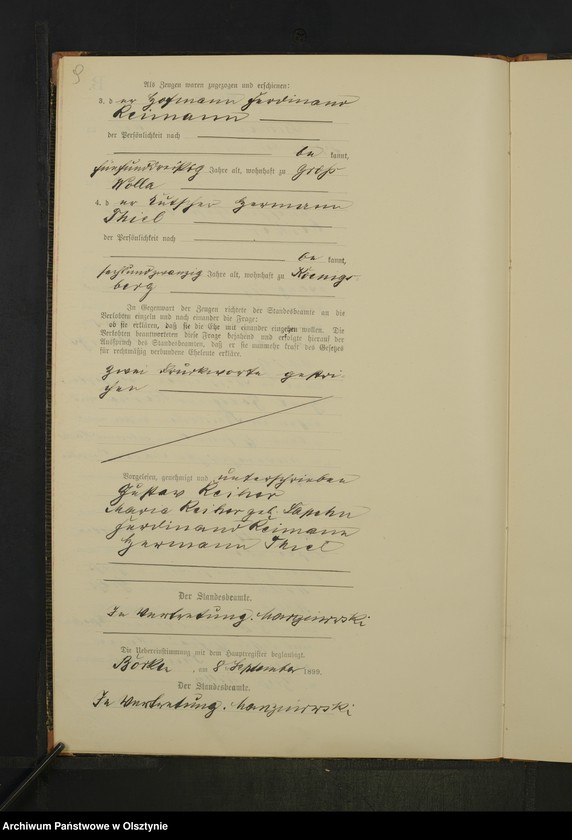 9
Als Zeugen waren zugezogen und erschienen:
3. der Hofmann Ferdinand
Reimann
der Persönlichkeit nach
be kannt,
fünfunddreißig Jahre alt, wohnhaft zu Groß
Wolla
4. der Kutscher Hermann
Thiel
der Persönlichkeit nach
be kannt,
sechsundzwanzig Jahre alt, wohnhaft zu Koenigs-
berg
In Gegenwart der Zeugen richtete der Standesbeamte an die
Verlobten einzeln und nach einander die Frage:
ob sie erklären, daß sie die Ehe mit einander eingehen wollen. Die
Verlobten beantworteten diese Frage bejahend und erfolgte hierauf der
Ausspruch des Standesbeamten, daß er sie nunmehr kraft des Gesetzes
für rechtmäßig verbundene Eheleute erkläre.
Zwei Druckworte gestri-
chen
Vorgelesen, genehmigt und unterschrieben
Gustav
Maria geb.
Ferdinand Reimann
Hermann Thiel
Der Standesbeamte.
In Vertretung.
Die Uebereinstimmung mit dem Hauptregister beglaubigt.
am 8 September 1899.
Der Standesbeamte.
In Vertretung.
Archiwum Państwowe w Olsztynie